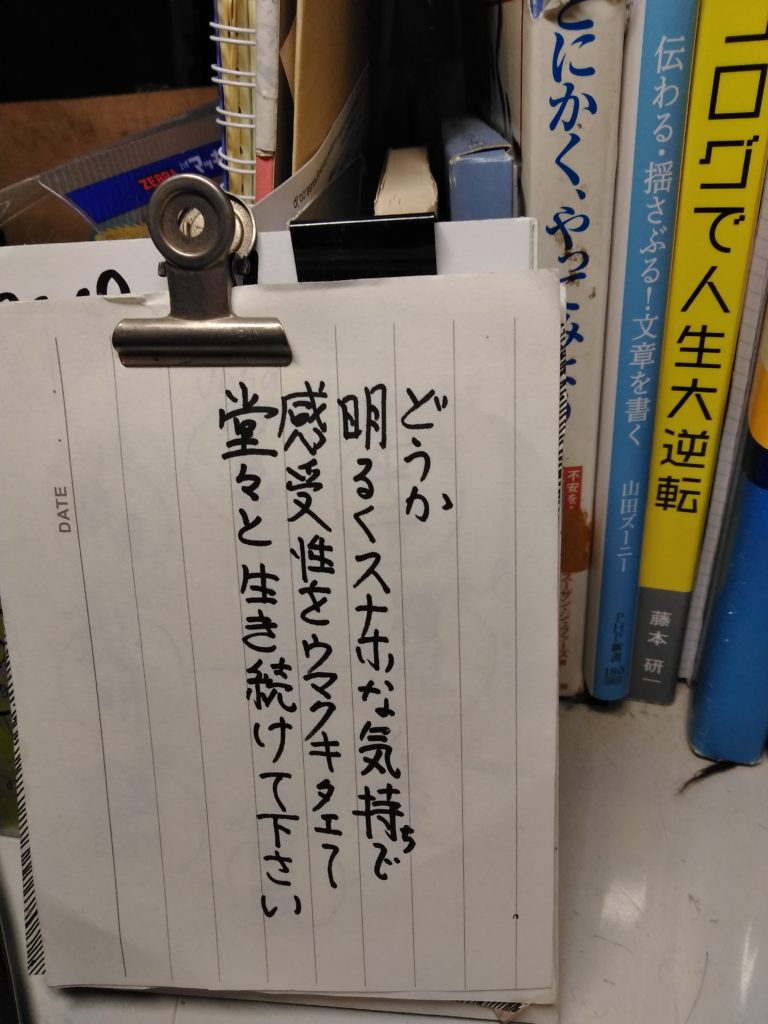 どうか
明るくスナホな気持ちで
感受性をウマクキタエて
堂々と生き続けて下さい
DATE
ZEBRA
マッキ
とにかく、やって
不安を
スーザン・ジェファーズ
伝わる・揺さぶる!文章を書く
山田ズーニー
PHP新書
180
ログで人生大逆転
藤本 研一